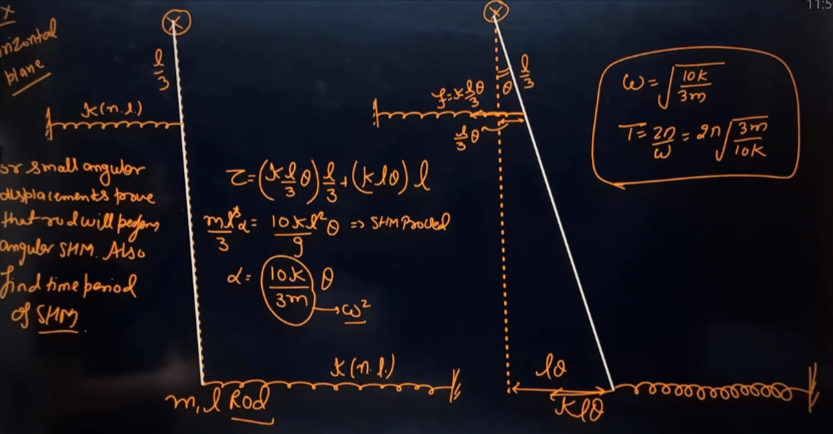 11:5
x
orizontal
plane
l/3
k(n.l.)
or small angular
displacements prove
that rod will perform
angular SHM. Also
find time period
of SHM
m, l Rod
k(n.l.)
τ = (k l/3 θ) l/3 + (klθ) l
ml²/3 α = 10kl²θ/9 ⇒ SHM Proved
α = (10k/3m) θ
→ ω²
l/3
θ
f = k l/3 θ
l/3 θ
lθ
klθ
ω = √(10k/3m)
T = 2π/ω = 2π √(3m/10k)